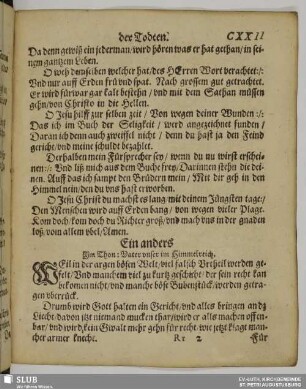 der Todten. CXXII
Da denn gewiß ein jederman/wird hören was er hat gethan/in sei-
nem gantzem Leben.
O weh demselben welcher hat/des HErren Wort verachtet:/:
Vnd nur auff Erden frü vnd spat. Nach grossem gut getrachtet.
Er wird fürwar gar kalt bestehn / vnd mit dem Sathan müssen
gehn/von Christo in die Hellen.
O Jesu hilff zur selben zeit / Von wegen deiner Wunden :/:
Das ich im Buch der Seligkeit / werd angezeichnet funden /
Daran ich denn auch zweiffel nicht / denn du hast ja den Feind
gericht/vnd meine schuld bezahlet.
Derhalben mein Fürsprecher sey / wenn du nu wirst erschei-
nen:/: Vnd liß mich aus dem Buche frey/Darinnen stehn die dei-
nen. Auff das ich sampt den Brüdern mein / Mit dir geh in den
Himmel nein/den du vns hast erworben.
O Jesu Christ du machst es lang/mit deinem Jüngsten tage/
Den Menschen wird auff Erden bang / von wegen vieler Plage.
Kom doch kom doch du Richter groß/vnd mach vns in der gnaden
loß/von allem vbel/Amen.
Ein anders
Im Thon: Vater vnser im Himmelreich.
WEil in der argen bösen Welt/viel falsch Vrtheil werden ge-
felt/Vnd manchem viel zu kurtz geschicht/der sein recht kan
bekomen nicht/vnd manche böse Bubenstück/werden getra-
gen vberrück.
Drumb wird Gott halten ein Gericht/vnd alles bringen an dz
Liecht/davon itzt niemand mucken thar/wird er alls machen offen-
bar/vnd wird kein Gwalt mehr gehn für recht/wie jetzt klagt man-
cher armer knecht.
Rr 2 Für
SLUB
Wir führen Wissen.
EV.-LUTH. KIRCHGEMEINDE
ST. PETRI AUGUSTUSBURG